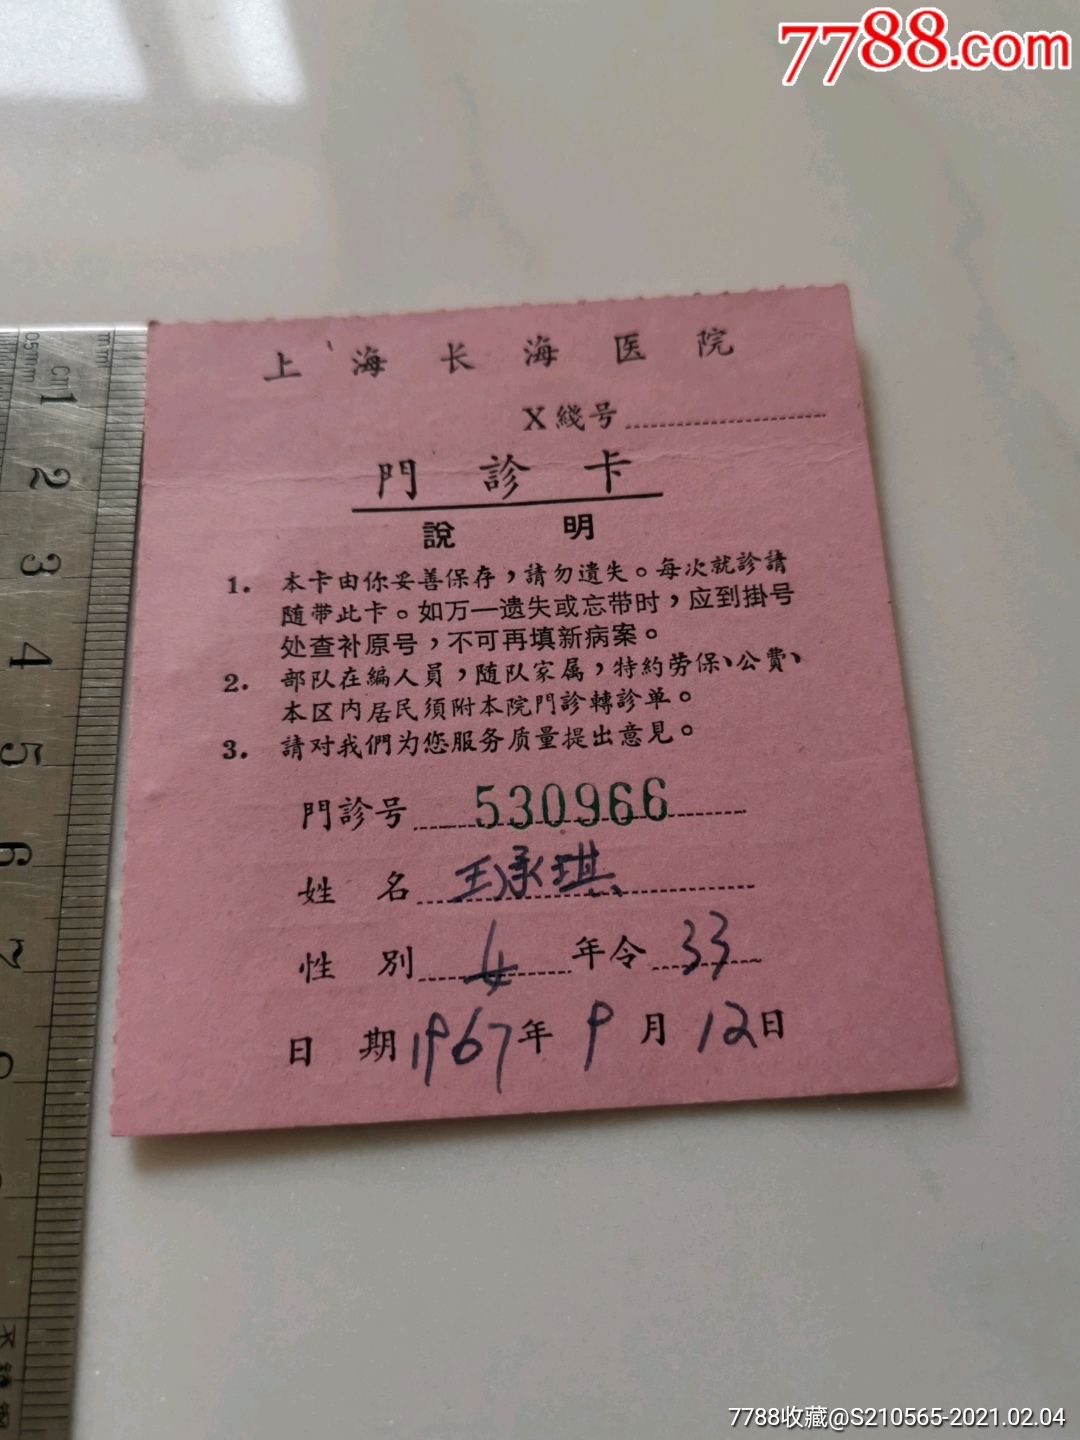 7788.com
上海长海医院
X綫号
門診卡
說明
1. 本卡由你妥善保存，請勿遺失。每次就診請
随带此卡。如万一遗失或忘带时，应到掛号
处查补原号，不可再填新病案。
2. 部队在編人員，随队家属，特約劳保、公費、
本区内居民須附本院門診轉診单。
3. 請对我們为您服务质量提出意見。
門診号 530966
姓名 王承琪
性別 女 年令 33
日期 1967年 9月 12日
mm
0.5mm
cm
1
2
3
4
5
6
7
不銹鋼
7788收藏@S210565-2021.02.04